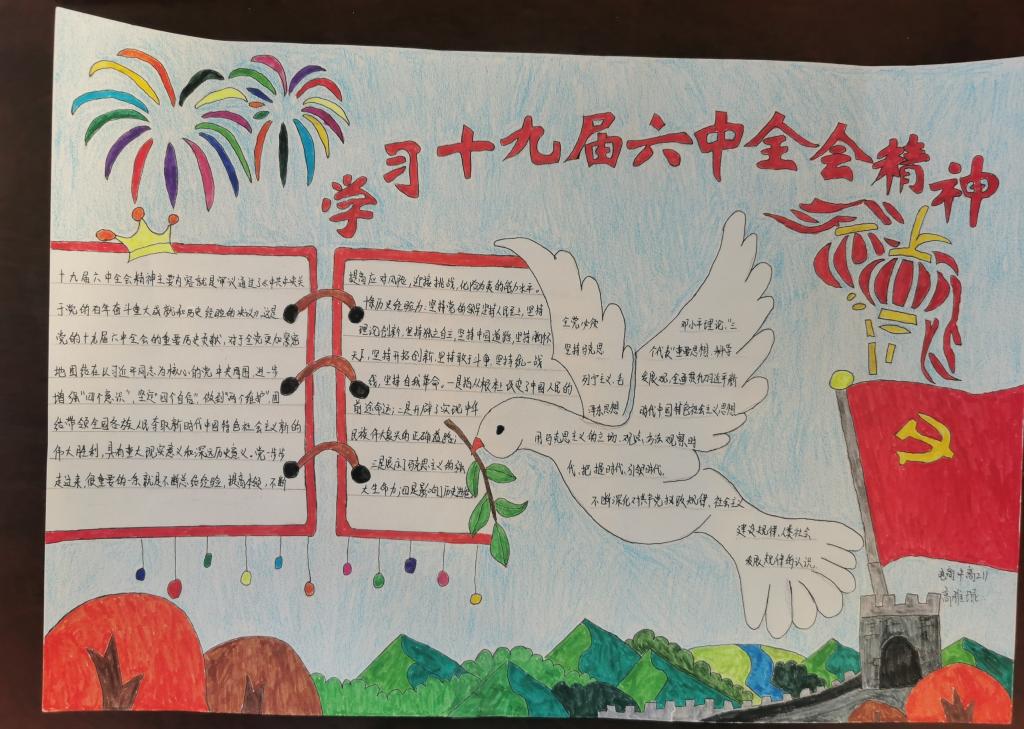 学习十九届六中全会精神
十九届六中全会精神主要内容就是审议通过了《中共中央关
于党的百年奋斗重大成就和历史经验的决议》,这是
党的十九届六中全会的重要历史贡献,对于全党更加紧密
地团结在以习近平同志为核心的党中央周围,进一步
增强“四个意识”,坚定“四个自信”,做到“两个维护”,团
结带领全国各族人民夺取新时代中国特色社会主义新的
伟大胜利,具有重大现实意义和深远历史意义。党一步步
走过来,很重要的一条就是不断总结经验,提高本领,不断
提高应对风险,迎接挑战,化险为夷的能力水平。
历史经验为:坚持党的领导坚持人民至上,坚持
理论创新,坚持独立自主,坚持中国道路,坚持胸怀
天下,坚持开拓创新,坚持敢于斗争,坚持统一战
线,坚持自我革命。一是从根本上改变了中国人民的
前途命运;二是开辟了实现中华
民族伟大复兴的正确道路;
三是展示了马克思主义的强
大生命力;四是影响了历史进程
全党必须
坚持马克思
列宁主义,毛
泽东思想
邓小平理论,“三
个代表”重要思想,科学
发展观,全面贯彻习近平新
时代中国特色社会主义思想
用马克思主义的立场,观点,方法,观察时
代,把握时代,引领时代,
不断深化对共产党执政规律,社会主义
建设规律,人类社会
发展规律的认识。
高211